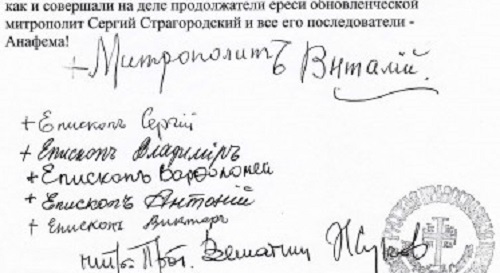 как и совершали на деле продолжатели ереси обновленческой
митрополит Сергий Страгородский и все его последователи -
Анафема!
+ Митрополитъ Виталій.
+ Епископъ Сергій
+ Епископъ Владиміръ
+ Епископъ Варѳоломей
+ Епископъ Антоній
+ Епископъ Викторъ
Прот. Веніамин Жуков